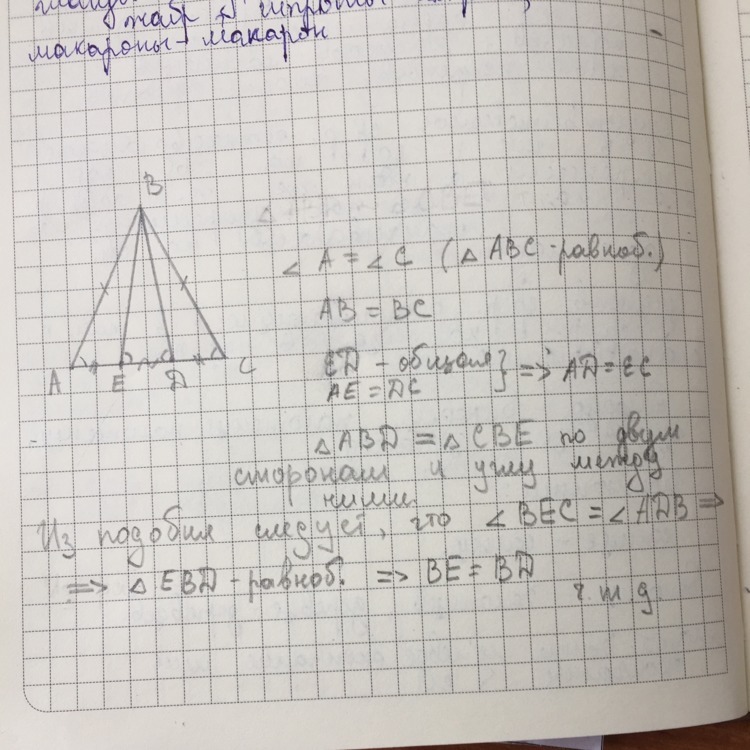 макароны - макарон
B
A E D C
∠ A = ∠ C (△ ABC - равноб.)
AB = BC
ED - общая
AE = DC } => AD = EC
△ ABD = △ CBE по двум
сторонам и углу между
ними.
Из подобия следует, что ∠ BEC = ∠ ADB =>
=> △ EBD - равноб. => BE = BD
ч.т.д.